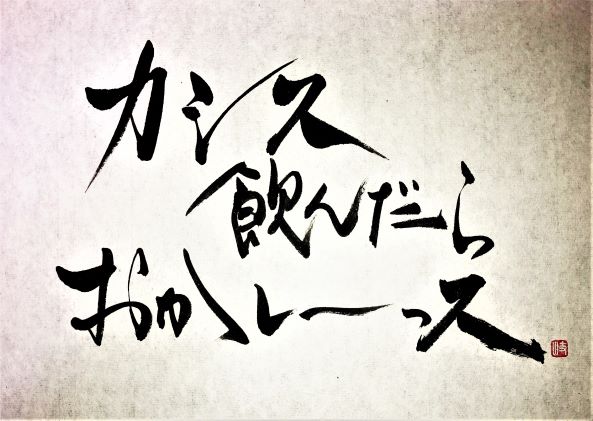 カシス
飲んだら
おかしーっス